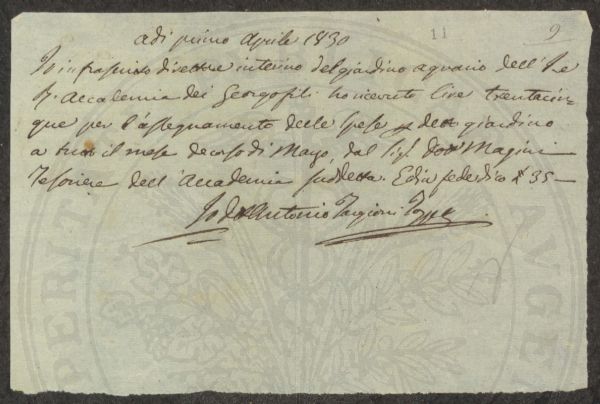 adi primo Aprile 1830
11
9
Io infrascritto direttore interino del giardino agrario dell' I. e
R. Accademia dei Georgofili ho ricevuto lire trentacin-
que per l'assegnamento delle spese di detto giardino
a tutto il mese decorso di Marzo, dal Sig.r Dott. Magini
Tesoriere dell' Accademia suddetta. Ed in fede dico £ 35 —
Io D. Antonio Targioni Tozzetti
PERITI
AUGE